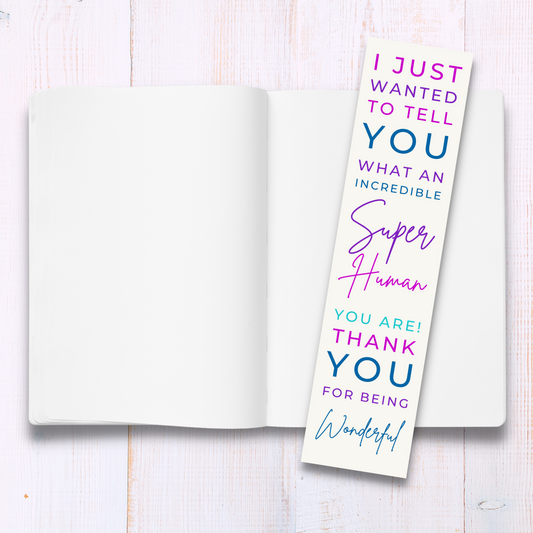 I JUST
WANTED
TO TELL
YOU
WHAT AN
INCREDIBLE
Super
Human
YOU ARE!
THANK
YOU
FOR BEING
Wonderful